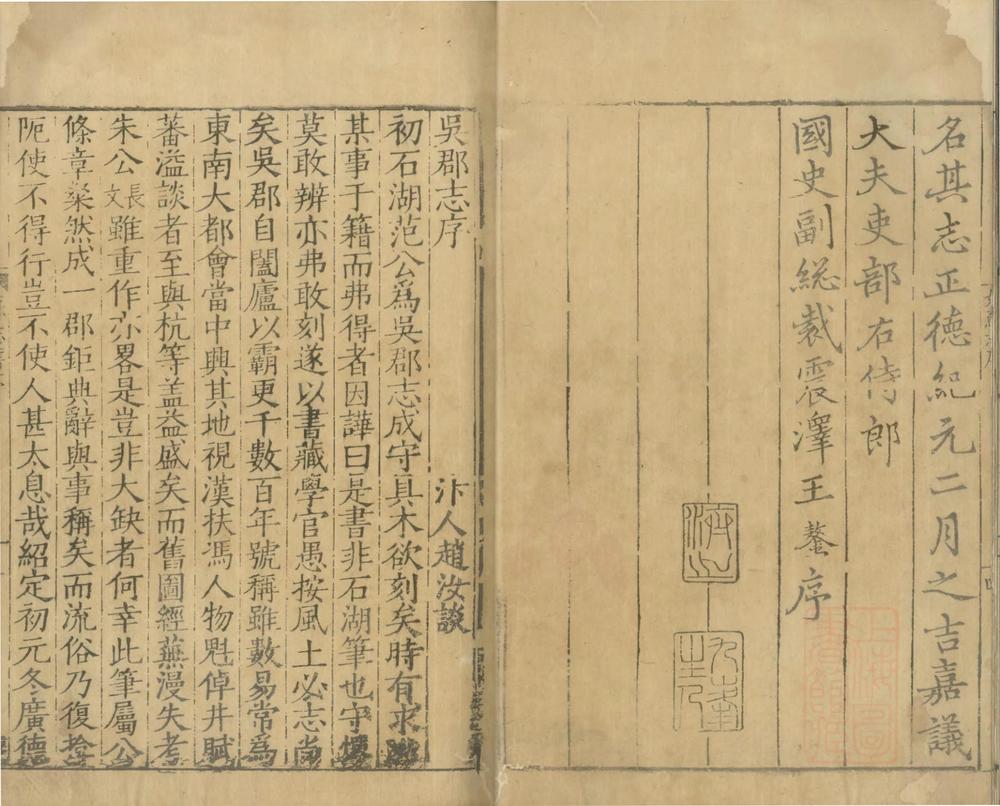 名其志正德紀元二月之吉嘉議
大夫吏部右侍郎
國史副總裁震澤王鏊序
濟之
吳郡志序
汴人趙汝談
初石湖范公爲吳郡志成守具木欲刻矣時有求
某事于籍而弗得者因譁曰是書非石湖筆也守
莫敢辨亦弗敢刻遂以書藏學官愚按風土必志尚
矣吳郡自闔廬以霸更千數百年號稱雖數易常爲
東南大都會當中興其地視漢扶馮人物魁倬井賦
蕃溢談者至與杭等盖益盛矣而舊圖經蕪漫失考
朱公長文雖重作亦畧是豈非大缺者何幸此筆屬公
條章粲然成一郡鉅典辭與事稱矣而流俗乃復
阨使不得行豈不使人甚太息哉紹定初元冬廣德